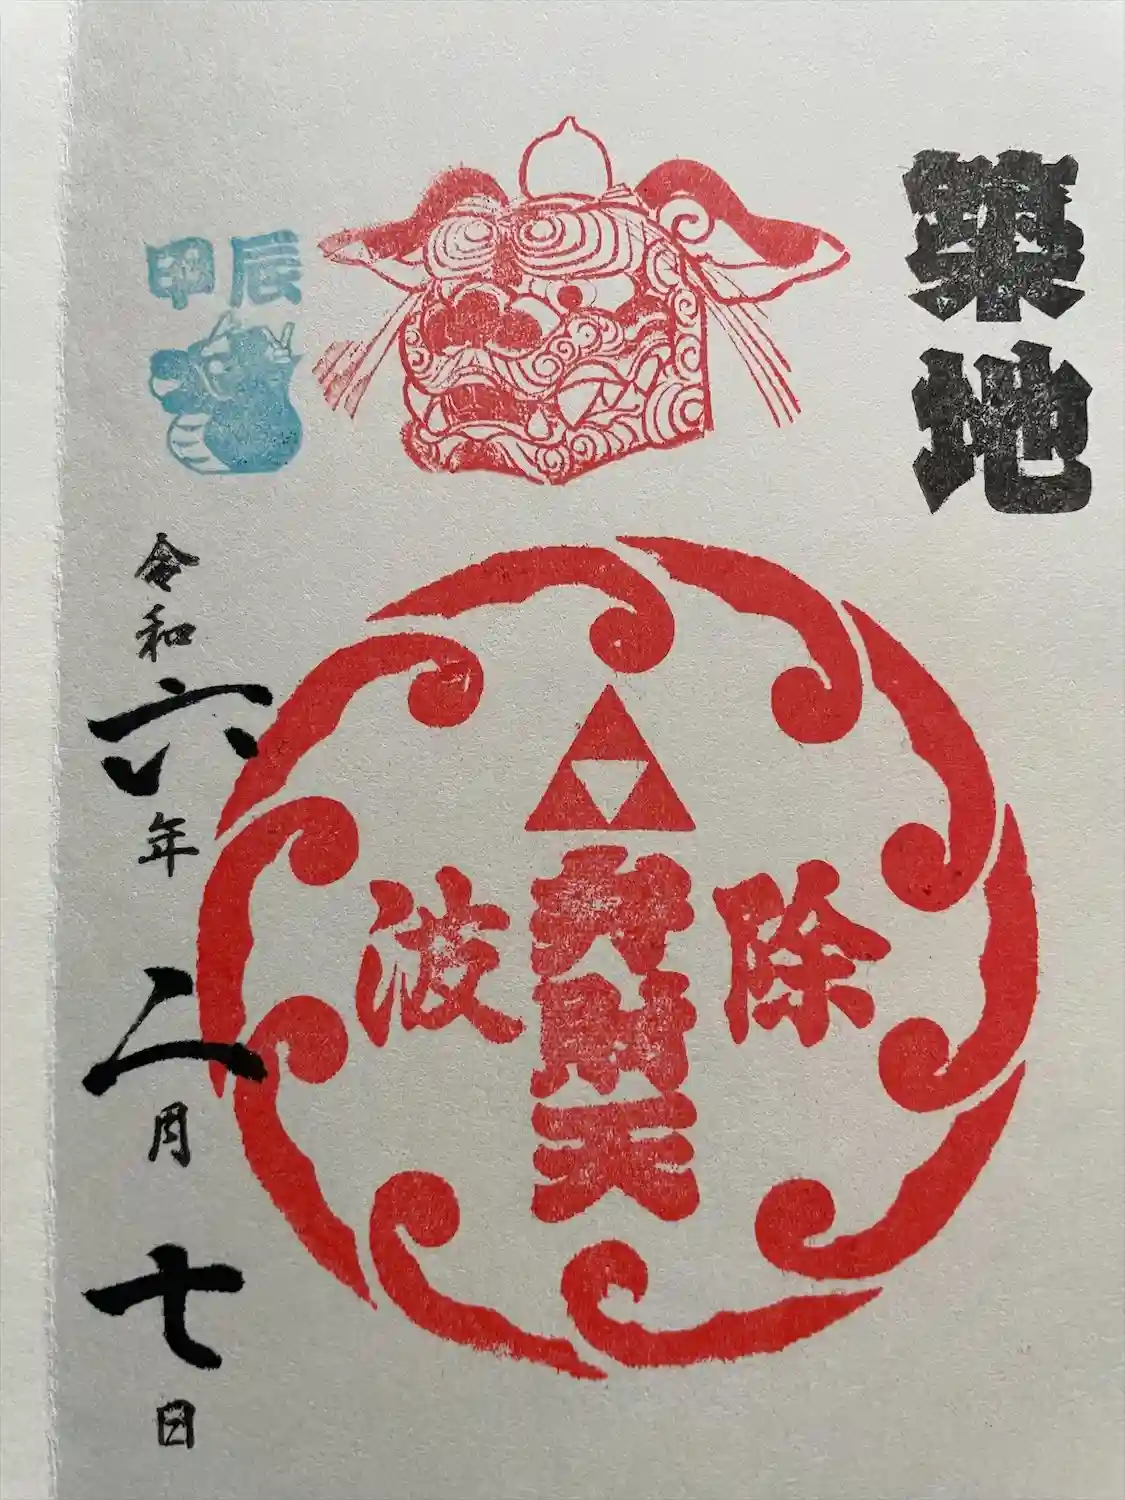 築地
除
弁財天
波
甲辰
令和六年二月七日